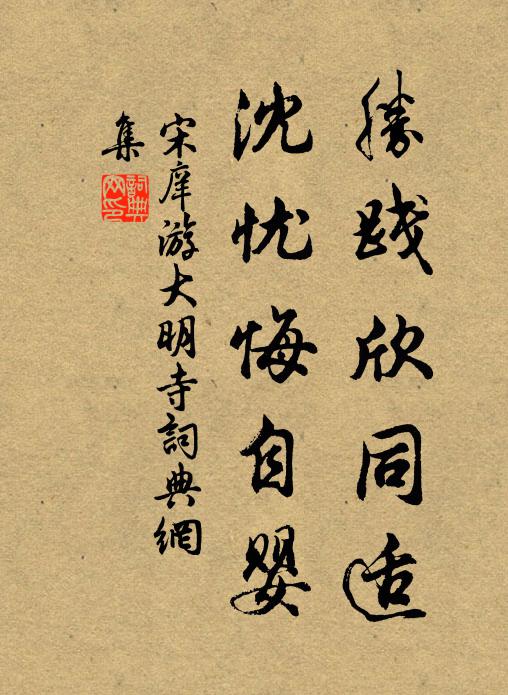 勝践欣同适
沈忧悔自嬰
宋庠游大明寺詞典網
集
詞典網印